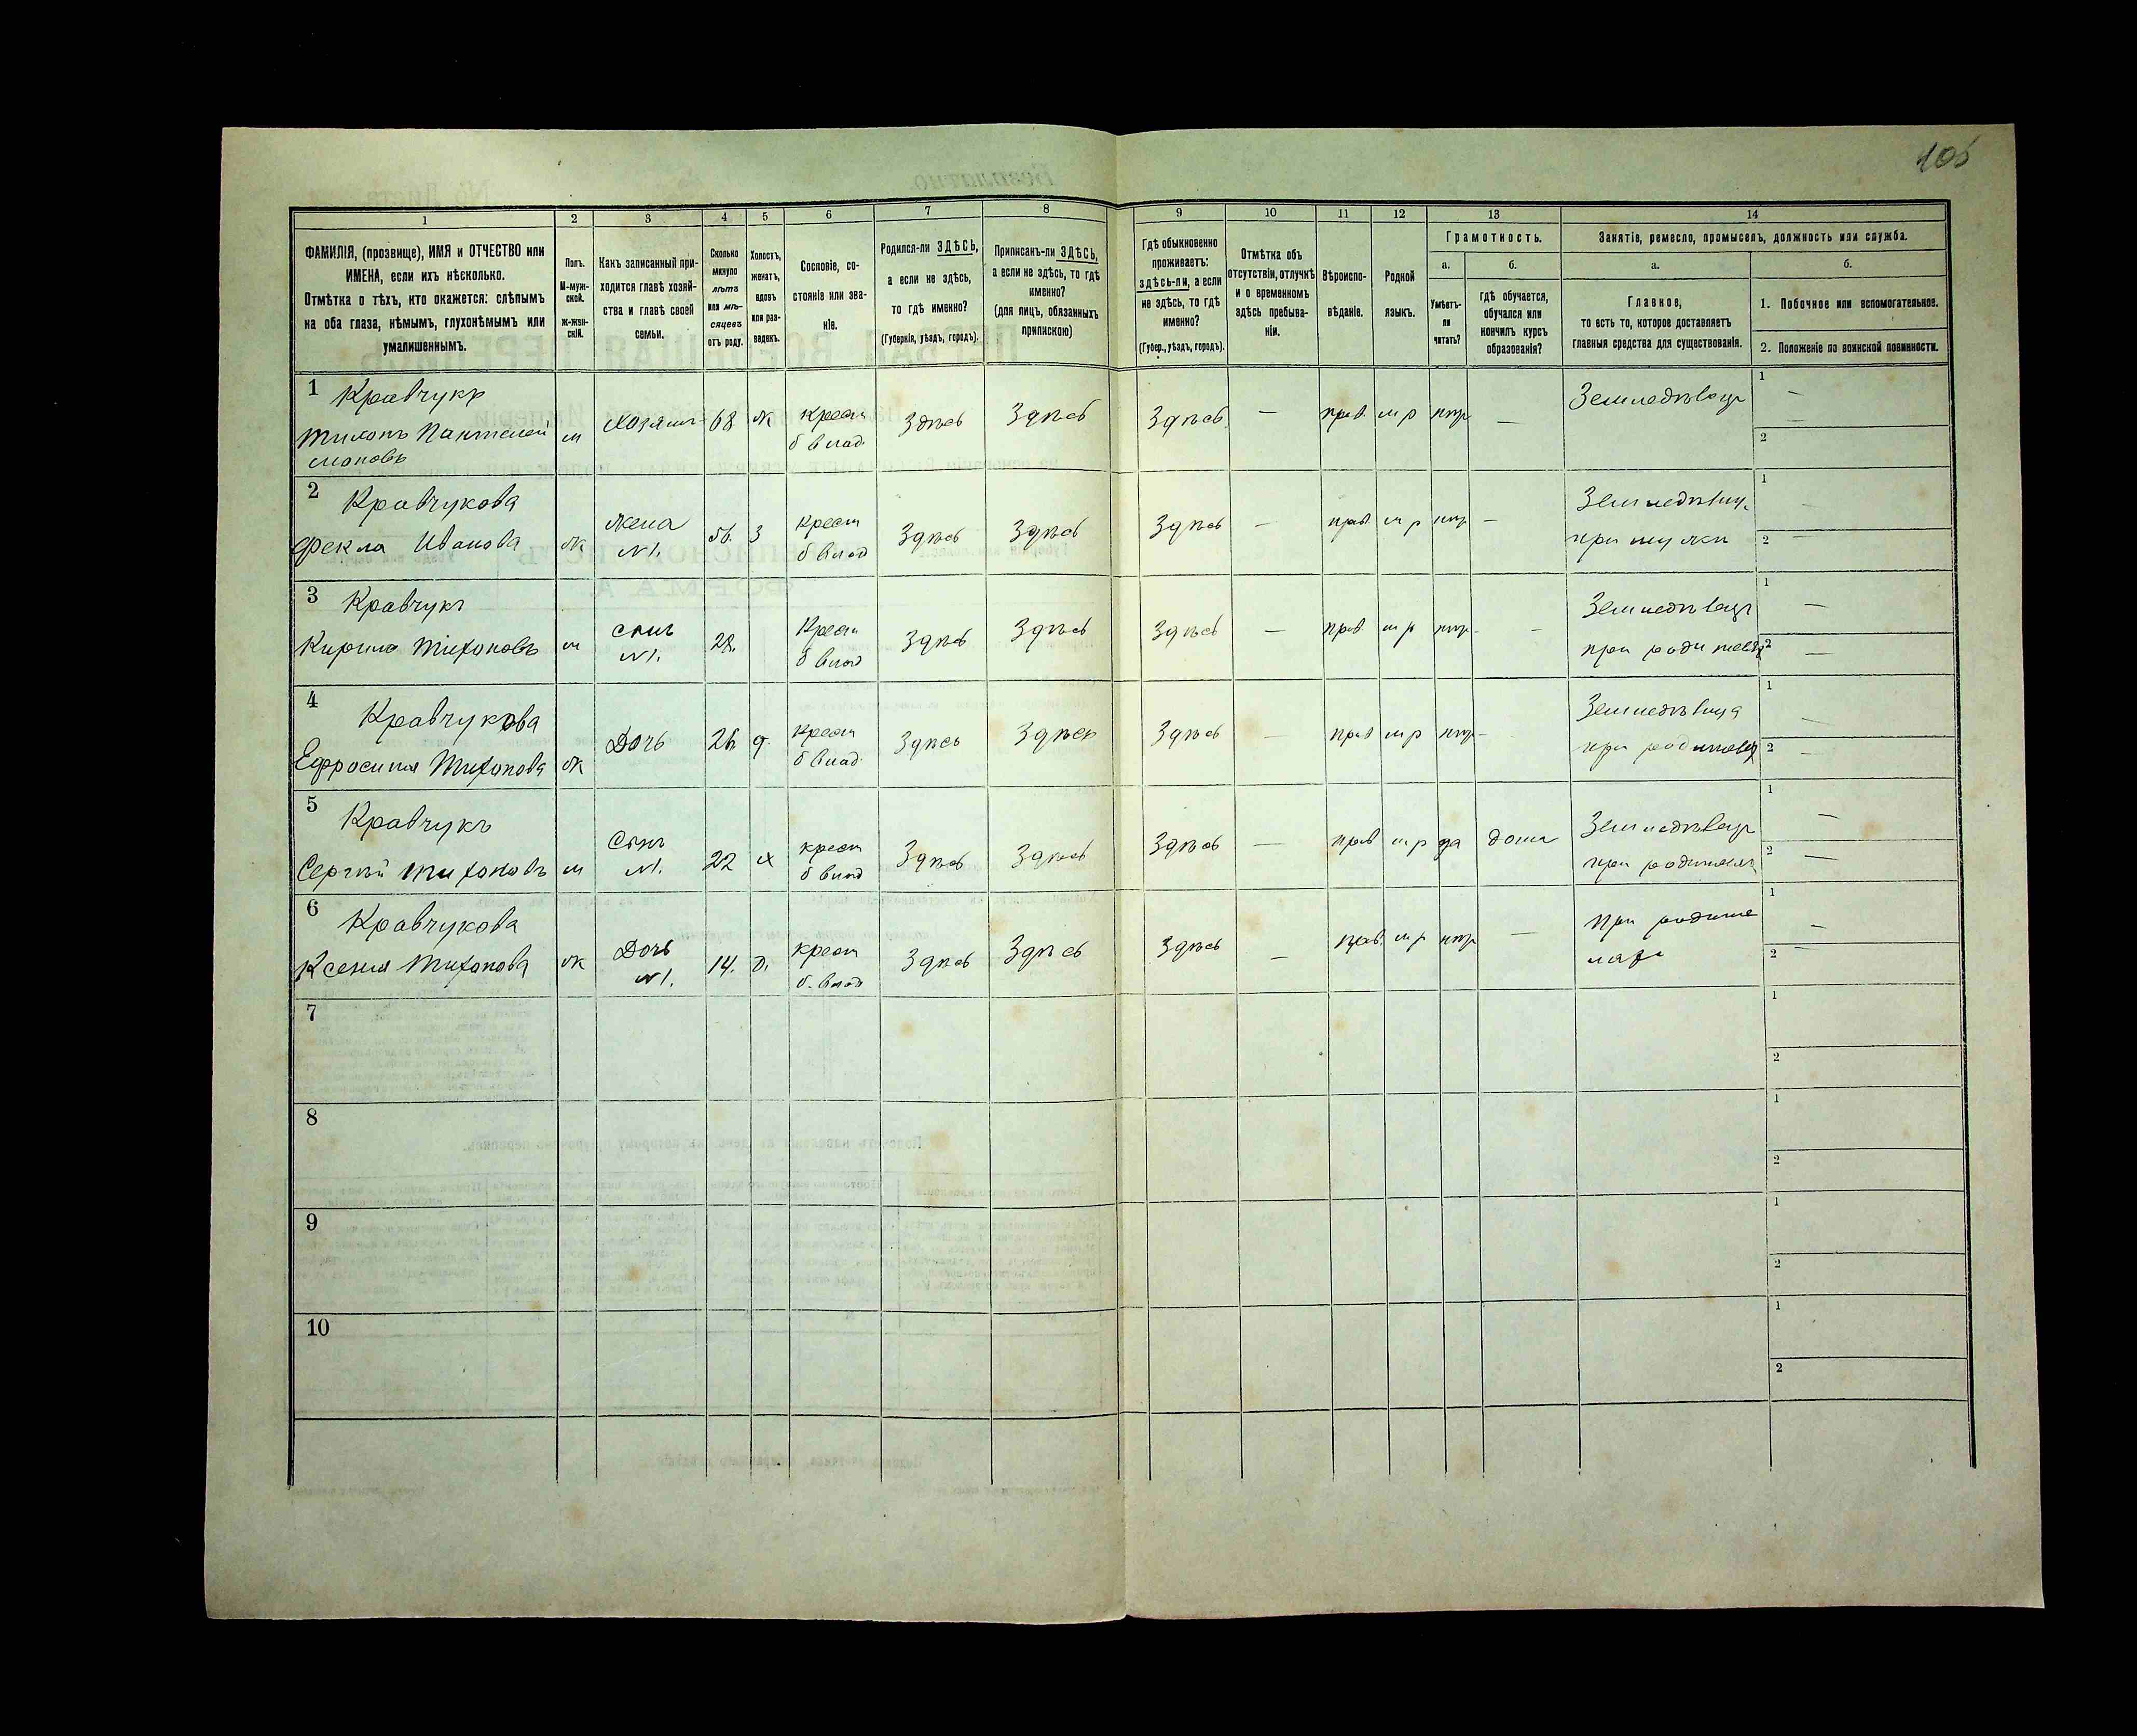 105
1
ФАМИЛІЯ, (прозвище), ИМЯ и ОТЧЕСТВО или
ИМЕНА, если ихъ нѣсколько.
Отмѣтка о тѣхъ, кто окажется: слѣпымъ
на оба глаза, нѣмымъ, глухонѣмымъ или
умалишеннымъ.
2
Полъ.
М-муж-
ской.
Ж-жен-
скій.
3
Какъ записанный при-
ходится главѣ хозяй-
ства и главѣ своей
семьи.
4
Сколько
минуло
лѣтъ
или мѣ-
сяцевъ
отъ роду.
5
Холостъ,
женатъ,
вдовъ
или раз-
веденъ.
6
Сословіе, со-
стояніе или зва-
ніе.
7
Родился-ли ЗДѢСЬ,
а если не здѣсь,
то гдѣ именно?
(Губернія, уѣздъ, городъ).
8
Приписанъ-ли ЗДѢСЬ,
а если не здѣсь, то гдѣ
именно?
(для лицъ, обязанныхъ
припискою)
9
Гдѣ обыкновенно
проживаетъ:
здѣсь-ли, а если
не здѣсь, то гдѣ
именно?
(Губер., уѣздъ, городъ).
10
Отмѣтка объ
отсутствіи, отлучкѣ
и о временномъ
здѣсь пребыва-
ніи.
11
Вѣроиспо-
вѣданіе.
12
Родной
языкъ.
13
Грамотность.
а.
Умѣетъ-
ли
читать?
б.
Гдѣ обучается,
обучался или
кончилъ курсъ
образованія?
14
Занятіе, ремесло, промыселъ, должность или служба.
а.
Главное,
то есть то, которое доставляетъ
главныя средства для существованія.
б.
1. Побочное или вспомогательное.
2. Положеніе по воинской повинности.
1 Кравчукъ
Тихонъ Пантелей
моновъ
м
Хозяинъ
68
ж
крест
б влад.
Здѣсь
Здѣсь
Здѣсь
—
прав.
м р
нѣтъ
—
Земледѣлецъ
1 —
2
2 Кравчукова
Фекла Иванова
ж
Жена
№1.
56.
З
крест
б влад
Здѣсь
Здѣсь
Здѣсь
—
прав.
м р
нѣтъ
—
при мужи
1 —
2 —
3 Кравчукъ
Кирило Тихоновъ
м
сынъ
№1.
28.
Крест
б влад
Здѣсь
Здѣсь
Здѣсь
—
прав.
м р
нѣтъ
—
Земледѣлецъ
1 —
2 —
4 Кравчукова
Ефросинія Тихонова
ж
Дочь
д
крест
б влад.
Здѣсь
Здѣсь
Здѣсь
—
прав
м р
нѣтъ
—
1 —
2 —
5 Кравчукъ
Сергѣй Тихоновъ
м
Сынъ
№1.
22
х
крест
б влад
Здѣсь
Здѣсь
Здѣсь
—
прав
м р
да
дома
Земледѣлецъ
1 —
2 —
6 Кравчукова
Ксенія Тихонова
ж
Дочь
№1.
14.
д.
крест
б. влад
Здѣсь
Здѣсь
Здѣсь
—
прав.
м р
нѣтъ
—
При родите
ляхъ
1 —
2 —
7
1
2
8
1
2
9
1
2
10
1
2